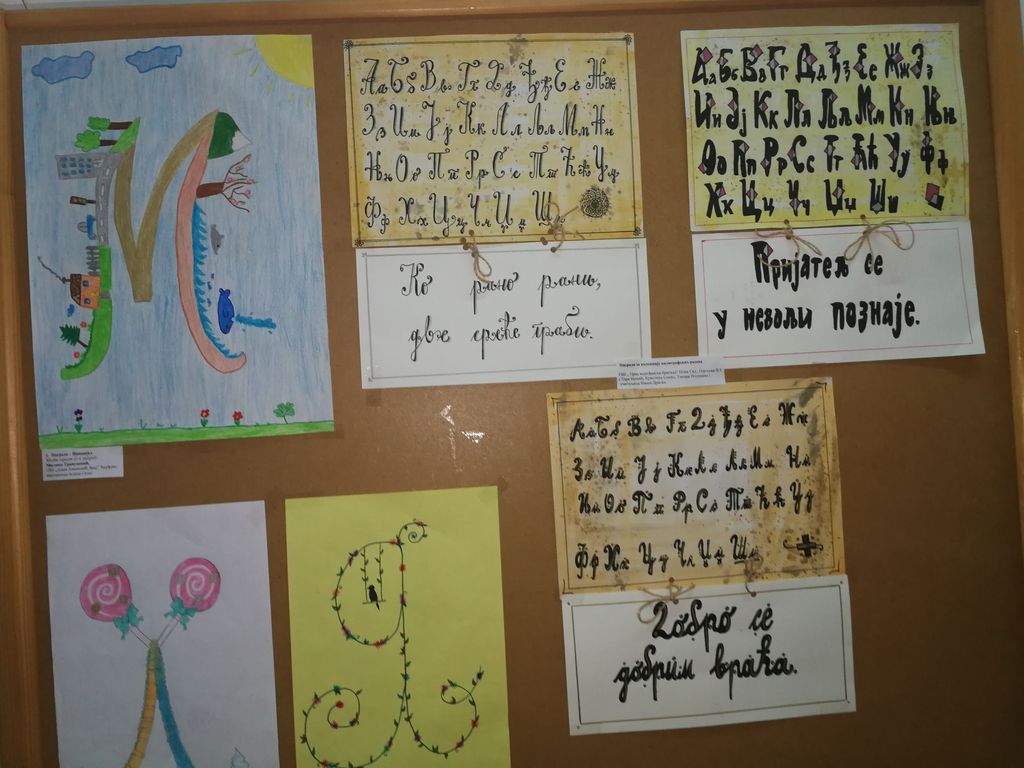 Аа Бб Вв Гг Дд Ђђ Ее Жж
Зз Ии Јј Кк Лл Љљ Мм Нн
Њњ Оо Пп Рр Сс Тт Ћћ Уу
Фф Хх Цц Чч Џџ Шш
Ко рано рани,
две среће граби.
Аа Бб Вв Гг Дд Ђђ Ее Жж Зз
Ии Јј Кк Лл Љљ Мм Нн Њњ
Оо Пп Рр Сс Тт Ћћ Уу Фф
Хх Цц Чч Џџ Шш
Пријатељ се
у невољи познаје.
Аа Бб Вв Гг Дд Ђђ Ее Жж
Зз Ии Јј Кк Лл Љљ Мм Нн
Њњ Оо Пп Рр Сс Тт Ћћ Уу
Фф Хх Цц Чч Џџ Шш
Добро се
добрим враћа.